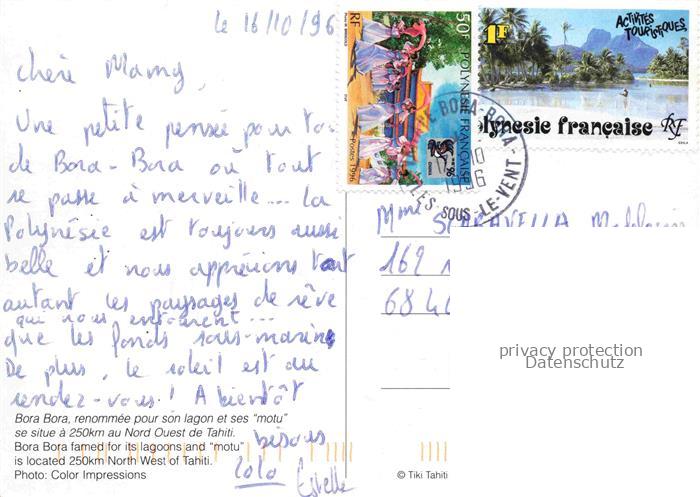 le 16/10/96
chère Mamy,
Une petite pensée pour toi
de Bora-Bora où tout
se passe à merveille.... La
Polynésie est toujours aussi
belle et nous apprécions tout
autant les paysages de rêve
qui nous entourent...
que les fonds sous-marins
De plus, le soleil est au
rendez-vous! A bientôt
bisous
Lolo Estelle
Bora Bora, renommée pour son lagon et ses "motu"
se situe à 250km au Nord Ouest de Tahiti.
Bora Bora famed for its lagoons and "motu"
is located 250km North West of Tahiti.
Photo: Color Impressions
© Tiki Tahiti
50F POLYNÉSIE FRANÇAISE
RF
Postes 1996
1F
ACTIVITÉS
TOURISTIQUES
Polynésie française RF
BORA-BORA
10
1996
ILES-SOUS-LE-VENT
Mme
169
privacy protection
Datenschutz